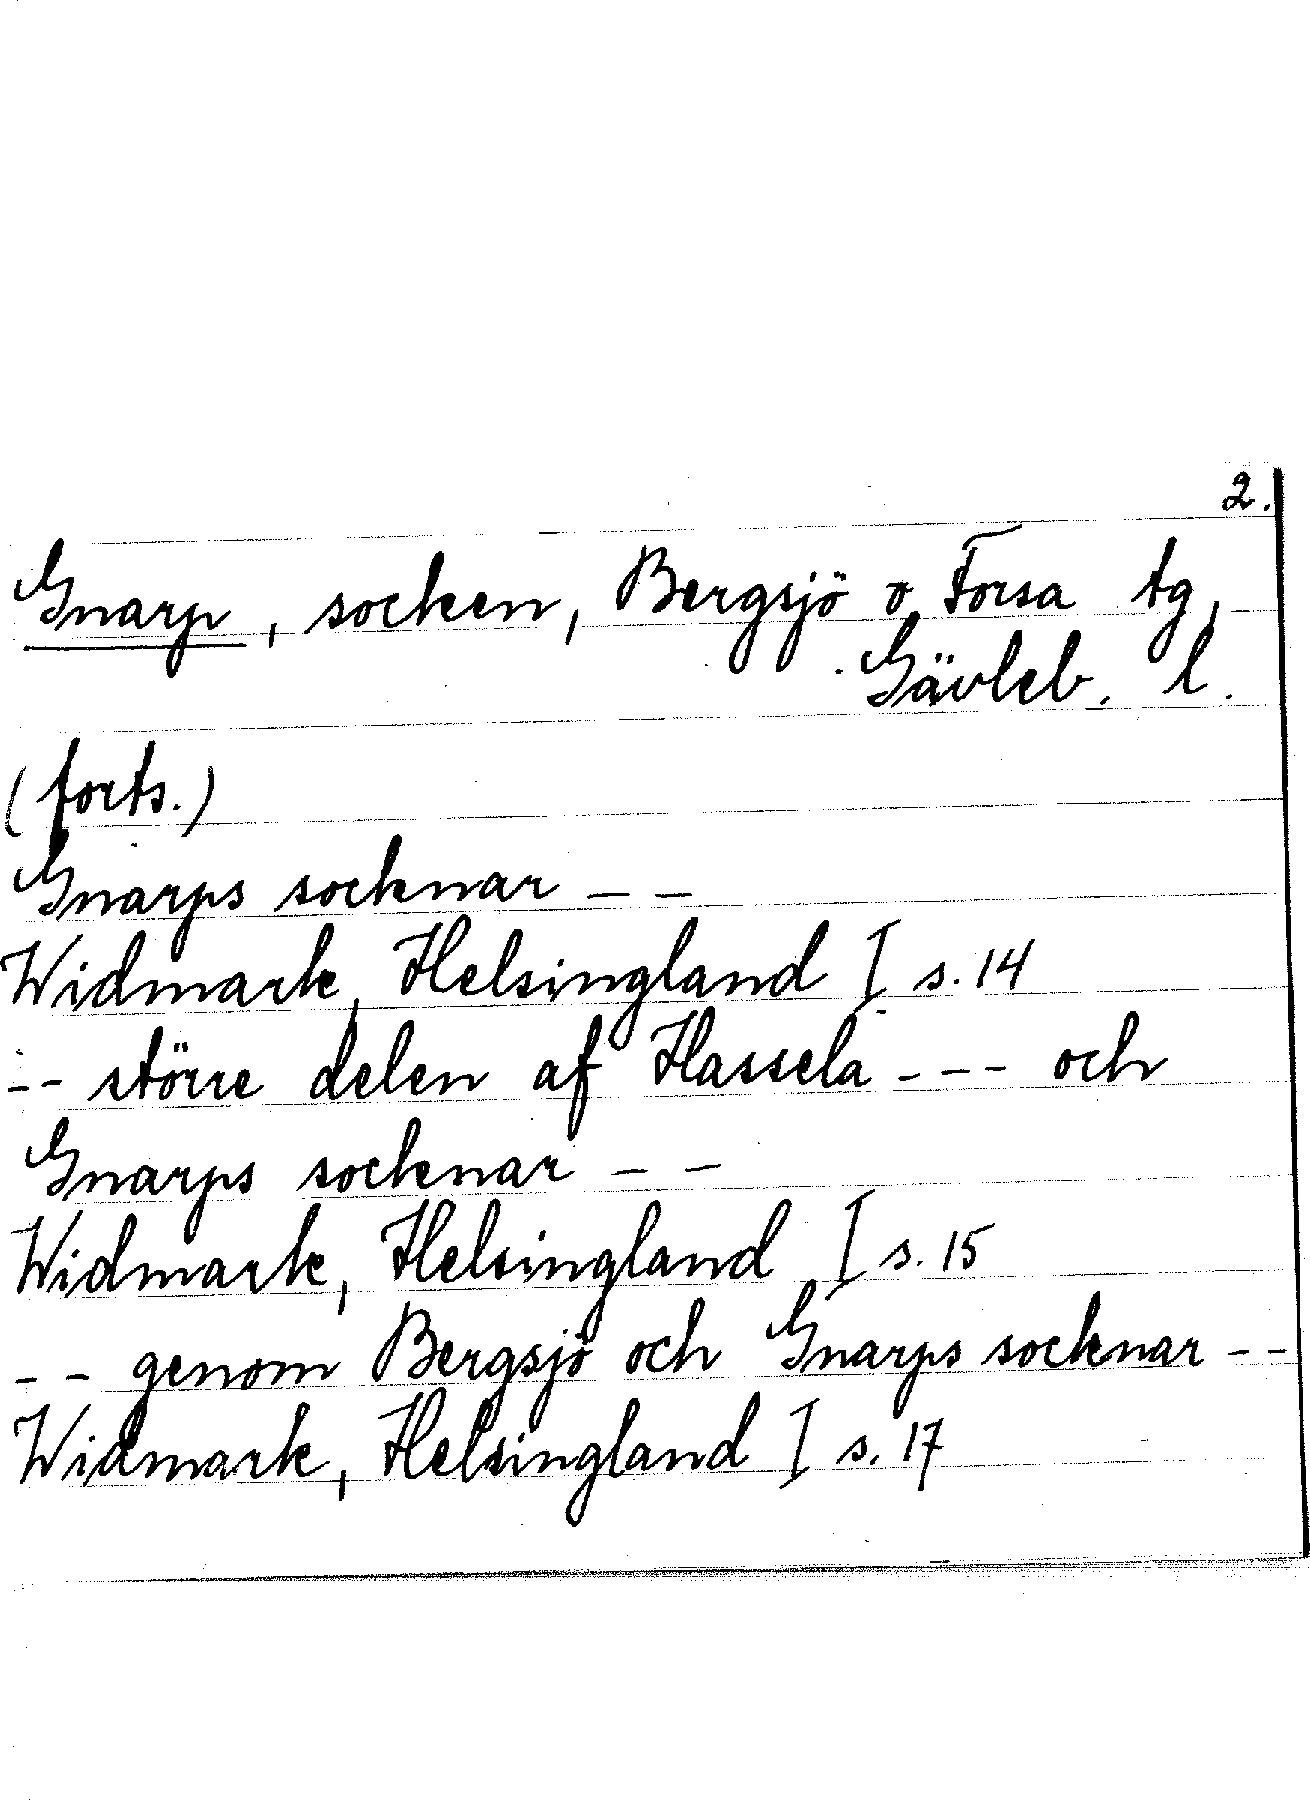 2.
Gnarp, socken, Bergsjö o. Forsa tg,
Gävleb. l.
(forts.)
Gnarps socknar – –
Widmark, Helsingland I s. 14
-- större delen af Hassela --- och
Gnarps socknar – –
Widmark, Helsingland I s. 15
-- genom Bergsjö och Gnarps socknar --
Widmark, Helsingland I s. 17